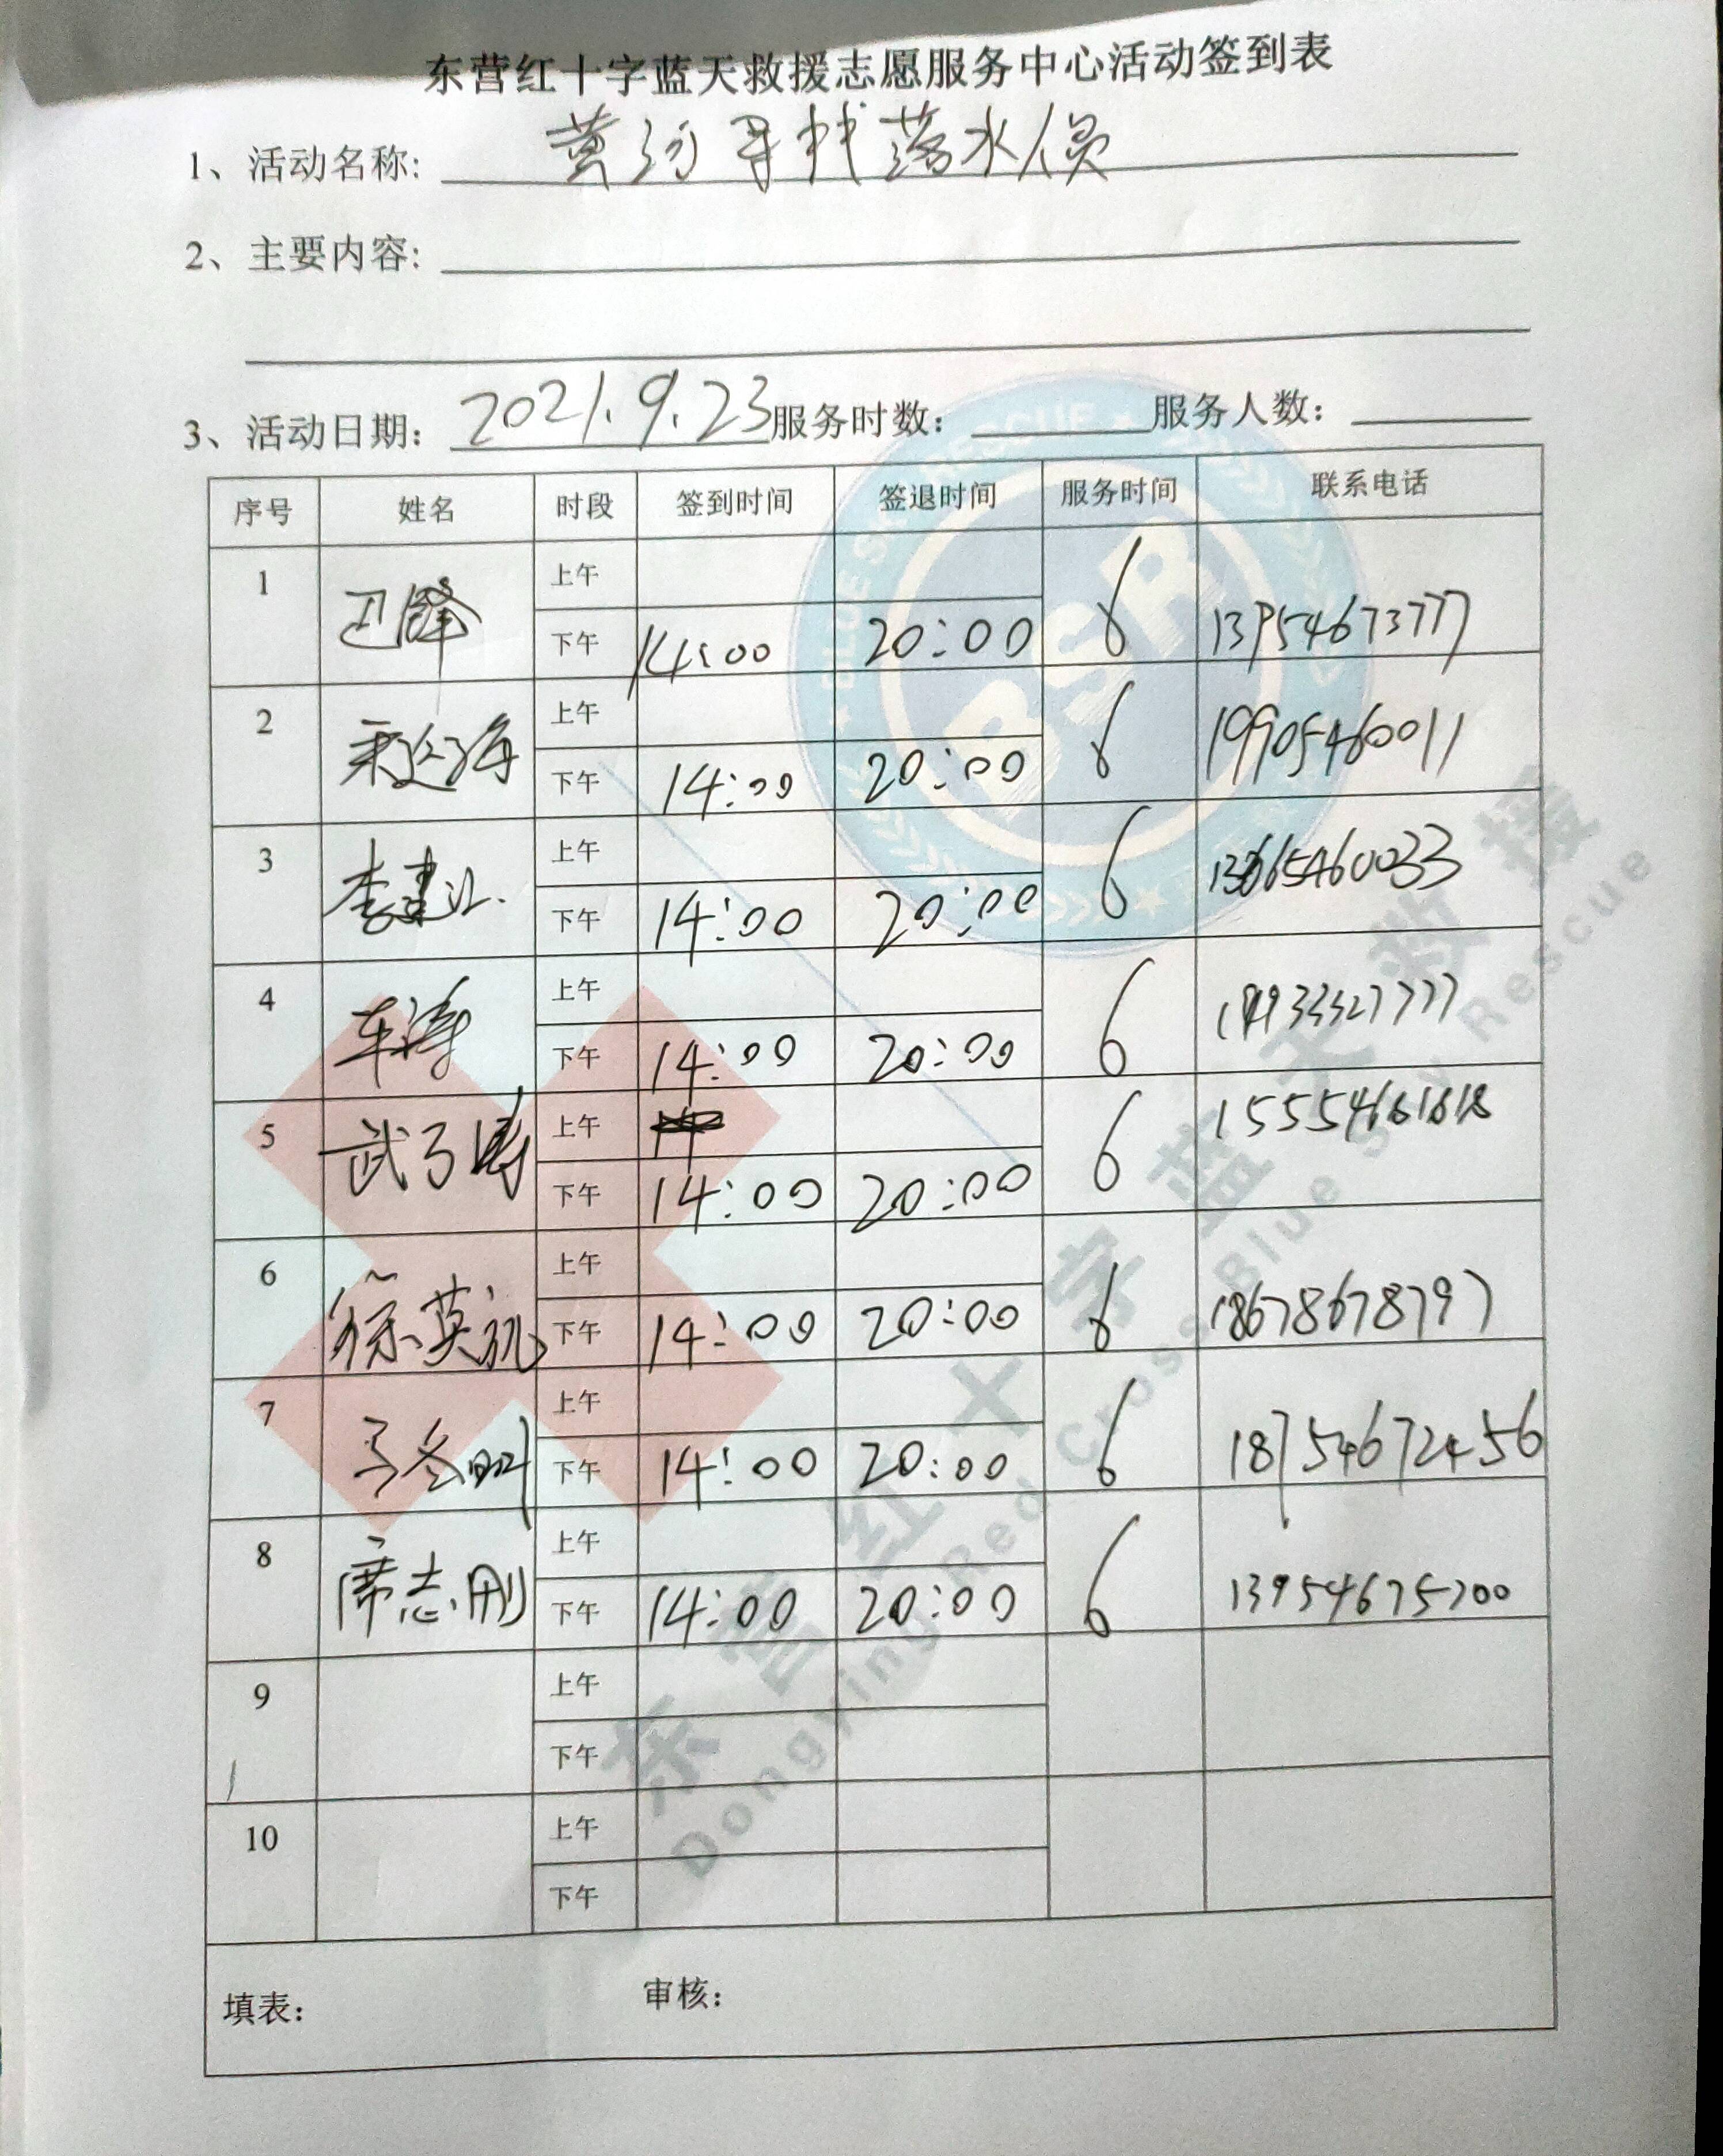 东营红十字蓝天救援志愿服务中心活动签到表
1、活动名称: 黄河寻找落水人员
2、主要内容:
3、活动日期: 2021.9.23 服务时数: 服务人数:
序号 姓名 时段 签到时间 签退时间 服务时间 联系电话
1 卫锋 上午
下午 14:00 20:00 6 13954673777
2 上午
下午 14:00 20:00 6 19905460011
3 李建 上午
下午 14:00 20:00 6 13665460033
4 车涛 上午
下午 14:00 20:00 6
5 武子涛 上午
下午 14:00 20:00 6 15554661618
6 徐英凯 上午
下午 14:00 20:00 6 18678678797
7 马冬明 上午
下午 14:00 20:00 6 18754672456
8 席志刚 上午
下午 14:00 20:00 6 13954675200
9 上午
下午
10 上午
下午
填表: 审核:
BLUE SKY RESCUE
BSR
东营红十字蓝天救援
Dongying Red Cross Blue Sky Rescue